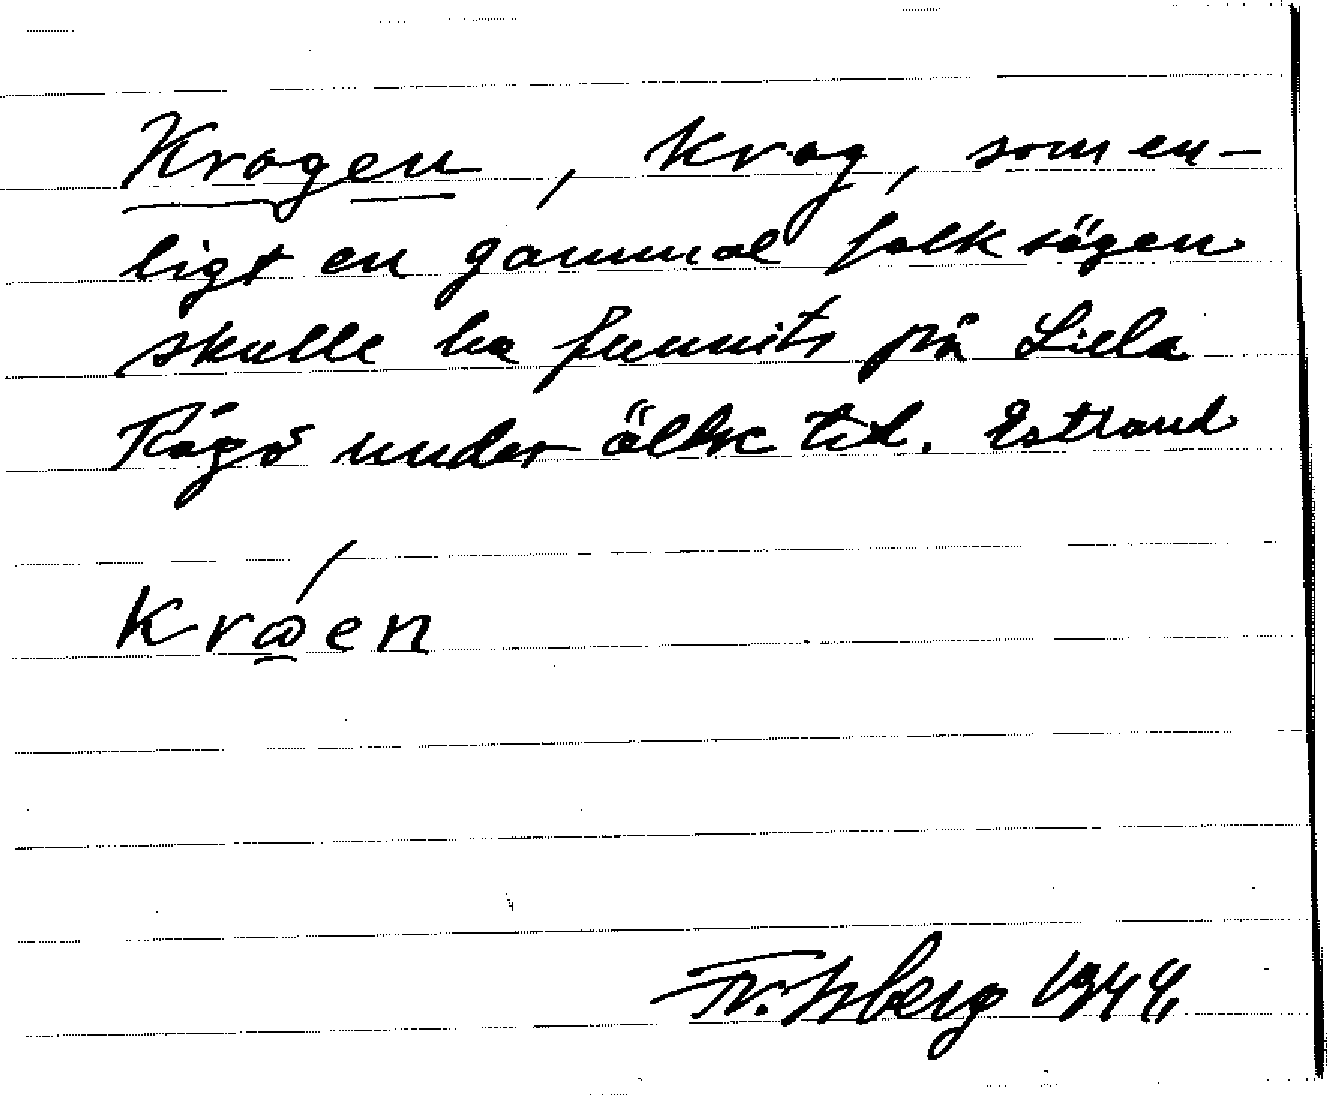 Krogen, krog, som en-
ligt en gammal folksägen
skulle ha funnits på Lilla
Rågö under äldre tid. Estland
Kroen
1944